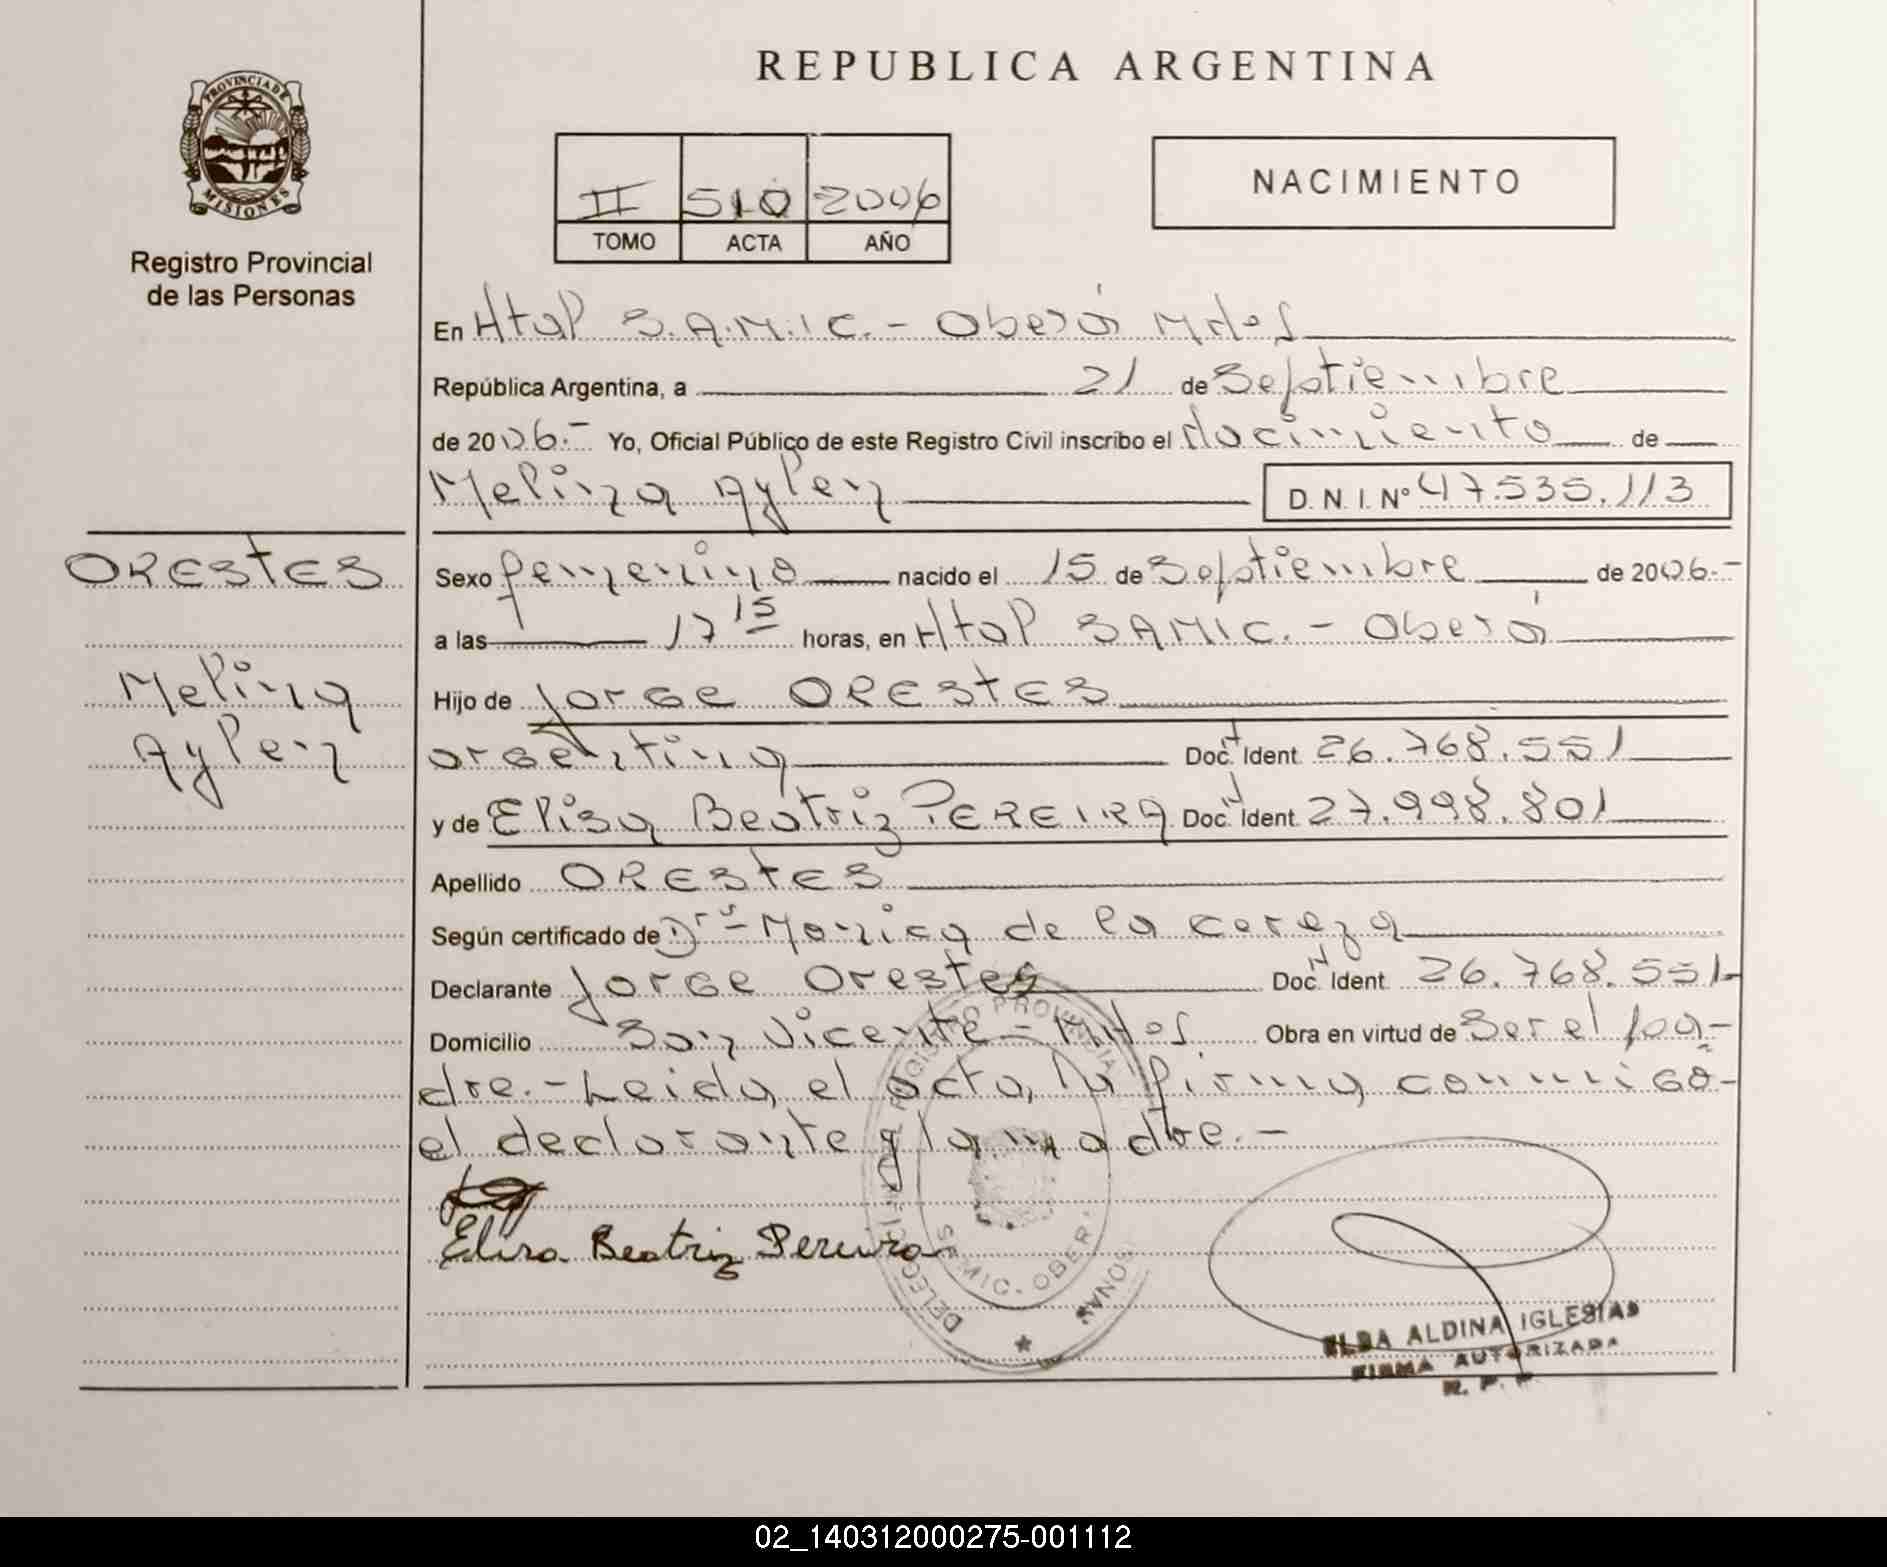 REPUBLICA ARGENTINA
PROVINCIA DE MISIONES
Registro Provincial
de las Personas
NACIMIENTO
II 510 2006
TOMO ACTA AÑO
En Htal S.A.M.I.C. - Oberá Mnes
República Argentina, a 21 de Septiembre
de 2006.- Yo, Oficial Público de este Registro Civil inscribo el Nacimiento de
Melina Aylen D.N.I. Nº 47.535.113
ORESTES
Melina
Aylen
Sexo femenino nacido el 15 de Septiembre de 2006.-
a las 17 15 horas, en Htal SAMIC. - Oberá
Hijo de Jorge ORESTES
argentina Doc. Ident. 26.768.551
y de Elisa Beatriz PEREIRA Doc. Ident. 27.998.801
Apellido ORESTES
Según certificado de Drª Monica de la
Declarante Jorge Orestes Doc. Ident. 26.768.551-
Domicilio San Vicente - Mnes Obra en virtud de Ser el pa-
dre.- Leida el acta, la firma conmigo-
el declarante y la madre.-
Elisa Beatriz Pereira
REGISTRO PROVINCIAL
SAMIC. OBERA
ELBA ALDINA IGLESIAS
FIRMA AUTORIZADA
R. P. P.
02_140312000275-001112